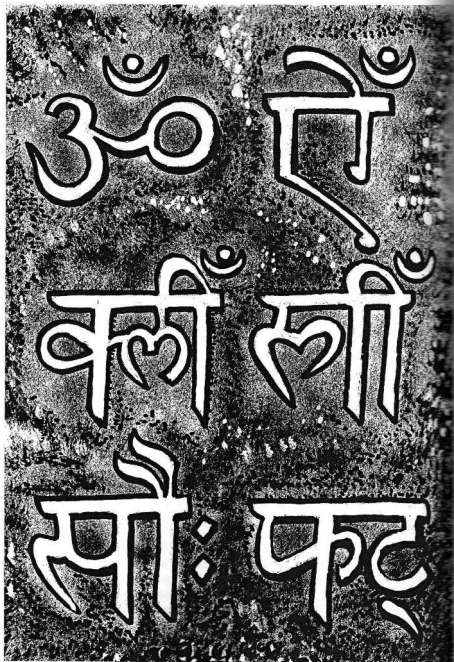 ॐ ऐँ
क्लीँ स्त्रीँ
सौः फट्